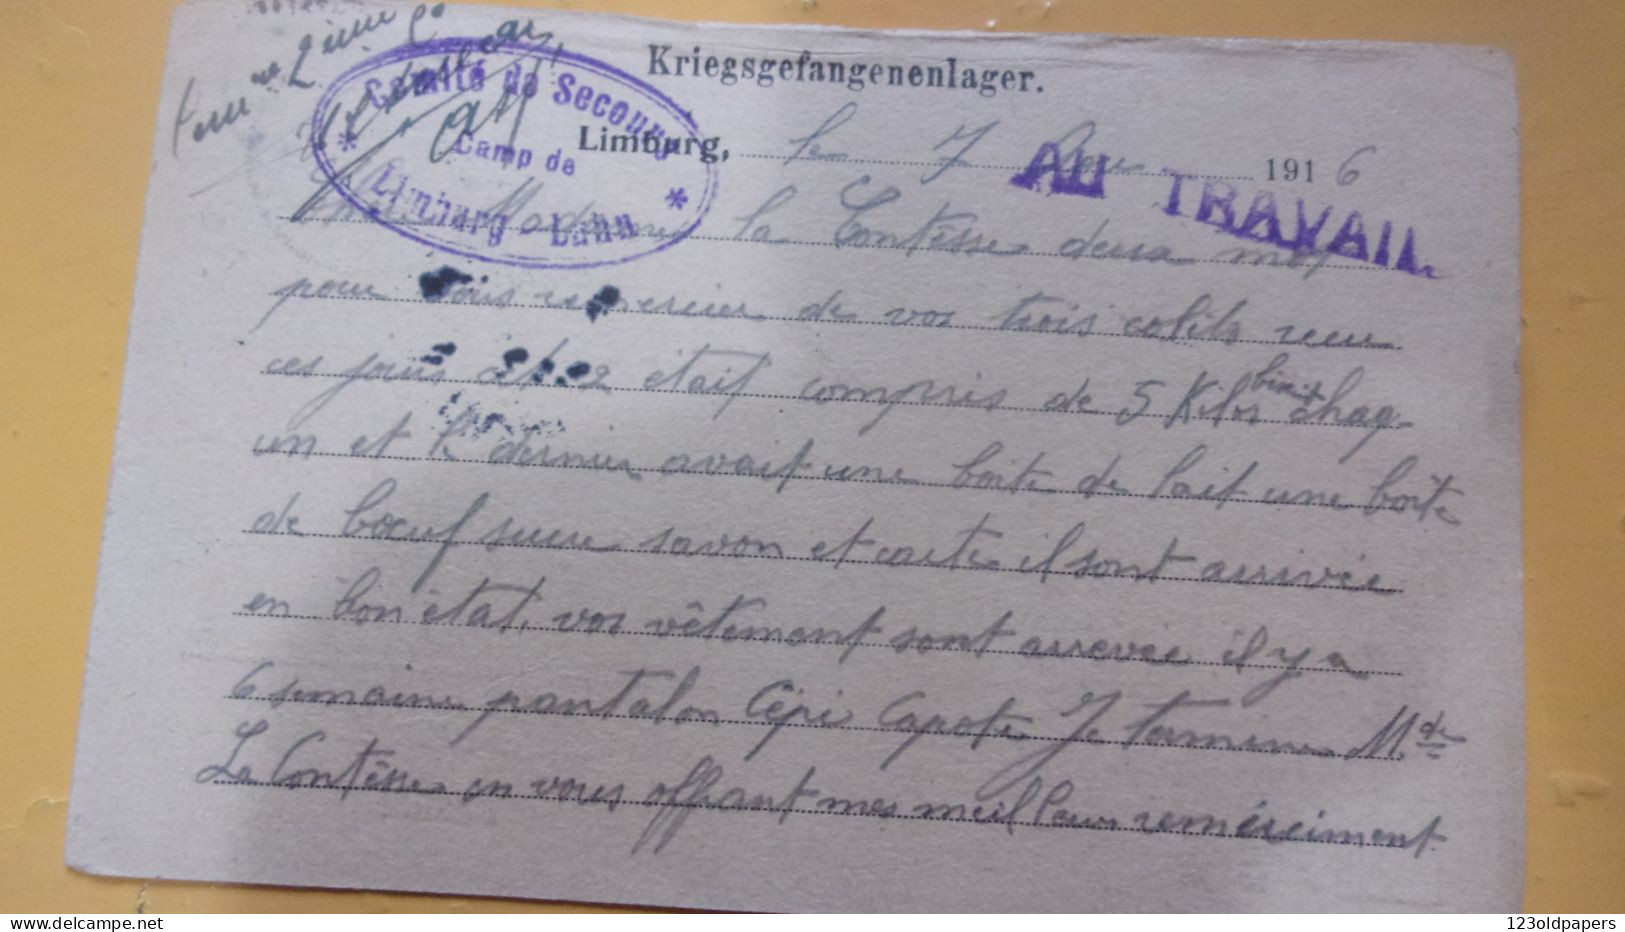 2ième Cie
Kriegsgefangenenlager.
Comité de Secours
Camp de
Limburg - Lahn
Limburg, le 7 1916
AU TRAVAIL.
Madame la Contèsse deux mot
pour vous remercier de vos trois colits recu
ces jours était compris de 5 Kilos biscuit chaq-
un et le dernier avait une boite de lait une boîte
de bœuf sucre savon et carte il sont arrivée
en bon état, vos vêtement sont arrevée il y a
6 semaine pantalon Cépi Capote Je termine Mde
La Contèsse en vous offrant mes meilleur remerciment
123oldpapers